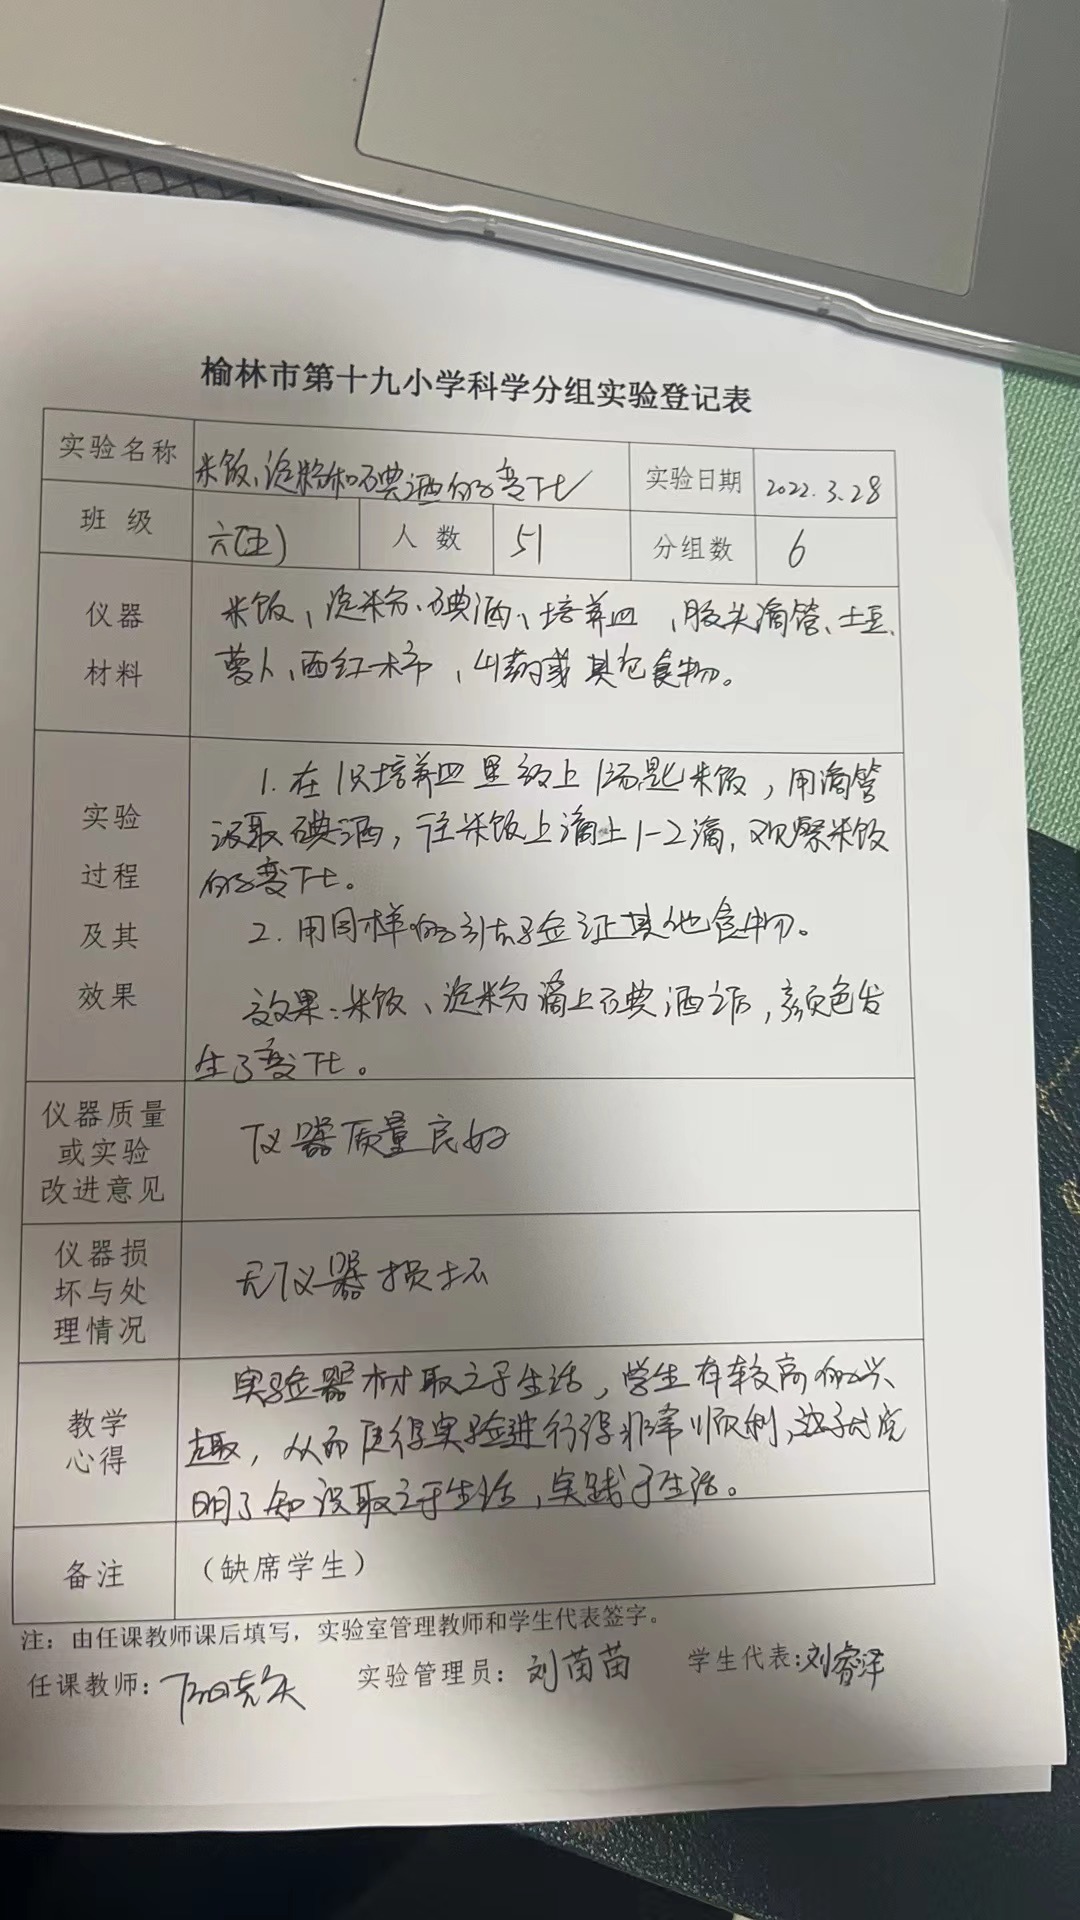 榆林市第十九小学科学分组实验登记表
实验名称 米饭、淀粉和碘酒的变化 实验日期 2022.3.28
班级 六(五) 人数 51 分组数 6
仪器 米饭、淀粉、碘酒、培养皿、胶头滴管、土豆、
材料 萝卜、西红柿、山药或其它食物。
1.在1只培养皿里放上1汤匙米饭,用滴管
实验 汲取碘酒,往米饭上滴上1-2滴,观察米饭
过程 的变化。
及其 2.用同样的方法验证其他食物。
效果 效果:米饭、淀粉滴上碘酒后,颜色发
生了变化。
仪器质量
或实验 仪器质量良好
改进意见
仪器损
坏与处 无仪器损坏
理情况
实验器材取之于生活,学生有较高的兴
教学 趣,从而使得实验进行得非常顺利,这充
心得 明了知识取之于生活,实践于生活。
备注 (缺席学生)
注:由任课教师课后填写,实验室管理教师和学生代表签字。
任课教师: 实验管理员:刘苗苗 学生代表:刘睿泽